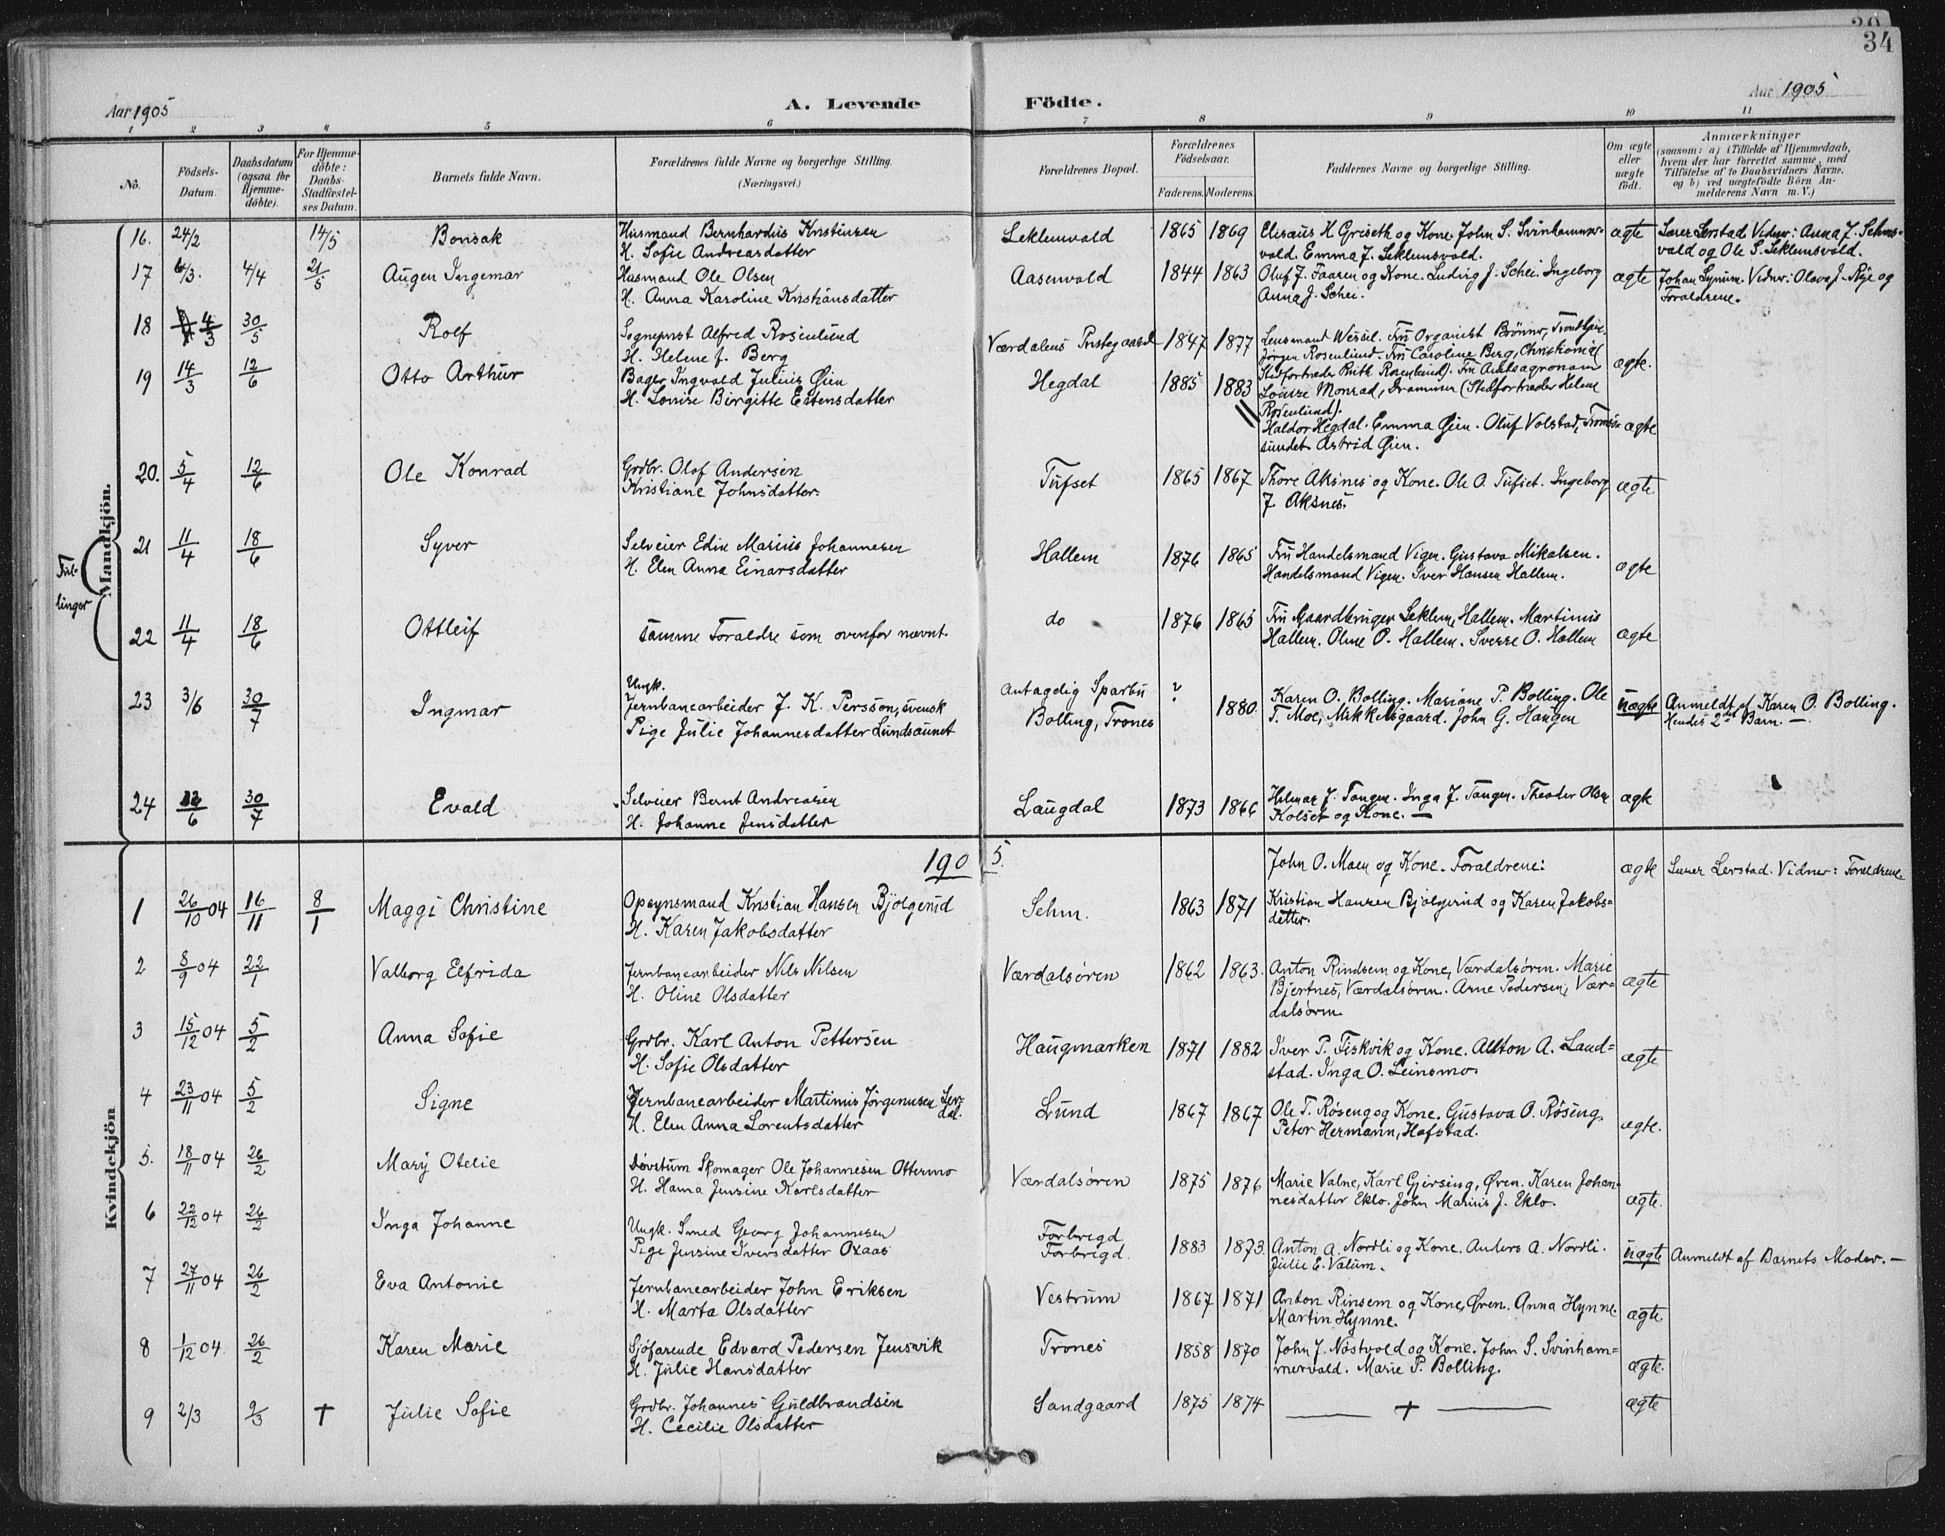 34
Aar 1905 A. Levende Födte. Aar 1905
1 2 3 4 5 6 7 8 9 10 11
No. Födsels-Datum. Daabsdatum (ogsaa for Hjemme-döbte). For Hjemme-döbte: Daabs-Stadfæstel-ses Datum. Barnets fulde Navn. Forældrenes fulde Navne og borgerlige Stilling. (Næringsvei.) Forældrenes Bopæl. Forældrenes Födselsaar. Faderens. Moderens. Faddernes Navne og borgerlige Stilling. Om ægte eller uægte födt. Anmærkninger (saasom: a) i Tilfælde af Hjemmedaab, hvem der har forrettet samme, med Tilföielse af to Daabsvidners Navne, og b) ved uægtefödte Börn An-melderens Navn m. V.)
Mandkjön.
16. 24/2 14/5 Bonsak Husmand Bernhardus Kristensen Leklemvald 1865 1869 Elesæus H. Griseth og Kone. John S. Svinhammer- ægte Vidner: Anna J.
H. Sofie Andreasdatter vald. Emma J. Leklemsvald. vald og Ole S. Leklemsvald.
17 6/3. 4/4 21/5 Augen Ingemar Husmand Ole Olsen Aasenvald 1844 1863 Oluf J. Faaren og Kone. Ludvig J. Schei. Ingeborg ægte Johan Lynum. Vidner. Olava J. Stye og
H. Anna Karoline Kristiansdatter Anna J. Schei. Forældrene.
18 4/3 30/5 Rolf Sogneprest Alfred Rosenlund Værdalens Prestegaard 1847 1877 Lensmand Wessel. Fru Organist Brönner,
H. Helene J. Berg Jörgen Rosenlund. Fru Caroline Berg, ægte.
19 14/3 12/6 Otto Arthur Bager Ingvald Julius Øien Hegdal 1885 1883 Stedfortræder Ruth Rosenlund). Fru Amtsagronom
H. Louise Birgitte Estensdatter Louise Monrad, Drammen (Stedfortræder Helene
Rosenlund).
Haldor Hegdal. Emma Øien. Oluf Volstad, ægte
sundet. Astrid Øien.
20. 5/4 12/6 Ole Konrad Grdbr. Olof Andersen Tufset 1865 1867 Thore Aksnes og Kone. Ole O. Tufset. Ingeborg ægte
Kristiane Johnsdatter. J. Aksnes.
Tvil-linger
21 11/4 18/6 Syver Selveier Edin Marius Johannesen Hallem 1876 1865 Fru Handelsmand Vigen. Gustava Mikalsen. ægte
H. Elen Anna Einarsdatter Handelsmand Vigen. Iver Hansen Hallem.
22 11/4 18/6 Ottleif samme Forældre som ovenfor nævnt do 1876 1865 Fru Gaardbruger Leklem, Hallem. Martinus ægte
Hallem. Oline P. Hallem. Sverre O. Hallem
23 3/6 30/7 Ingmar Ungk. antagelig Sparbu ? Karen O. Bolling. Mariane P. Bolling. Ole uægte Anmeldt af Karen O. Bolling.
Jernbanearbeider J. K. Persson, svensk Bolling, Trones 1880 T. Moe, Mikkelsgaard. John G. Haugen Hendes 2det Barn. —
Pige Julie Johannesdatter Lundsaunet
24 /6 30/7 Evald Selveier Bernt Andreasen Laugdal 1873 1866 Helmar J. Tangen. Inga J. Tangen. Theodor Olsen ægte
H. Johanne Jensdatter Kolset og Kone. —
1905.
Kvindekjön
John O. Moen og Kone. Forældrene: ægte Vidner: Forældrene
1 26/10 04 16/11 8/1 Maggi Christine Opsynsmand Kristian Hansen Bjølgerud Sehm. 1863 1871 Kristian Hansen Bjølgerud og Karen Jakobs-
H. Karen Jakobsdatter datter.
2 8/9 04 22/1 Valborg Elfrida Jernbanearbeider Nils Nilsen Værdalsøren 1862 1863. Anton Rindsem og Kone, Værdalsøren. Marie ægte
H. Oline Olsdatter Bjertnes, Værdalsøren. Arne Pedersen, Vær-
dalsøren.
3 15/12 04 5/2 Anna Sofie Grdbr. Karl Anton Pettersen Haugmarken 1871 1882 Iver P. Fiskvik og Kone. Anton A. Land- ægte
H. Sofie Olsdatter stad. Inga O. Leinsmo.
4 23/11 04 5/2 Signe Jernbanearbeider Martinus Jørgensen Ler-dal. Lund 1867 1867 Ole T. Røseng og Kone. Gustava O. Røseng. ægte.
H. Elen Anna Lorentsdatter Peter Hermann, Hofstad.
5. 18/11 04 26/2 Mary Otelie Skomager Ole Johannesen Ottermo Værdalsøren 1875 1876 Marie Valne, Karl Gjersing, Øren. Karen Johan-
H. Hanna Jensine Karlsdatter nesdatter Eklo. John Marius J. Eklo. ægte.
6 22/12 04 26/2 Inga Johanne Ungk. Smed Georg Johannesen Forbregd 1883 1873 Anton A. Nordli og Kone. Anders A. Nordli. uægte Anmeldt af Barnets Moder. —
Pige Jensine Iversdatter Oxaas Forbregd. Julie E. Valum.
7 27/11 04 26/2 Eva Antonie Jernbanearbeider John Eriksen Vestrum 1867 1871 Anton Rinsem og Kone, Øren. Anna Hynne. ægte.
H. Marta Olsdatter Martin Hynne.
8 1/12 04 26/2 Karen Marie Sjøfarende Edvard Pedersen Jensvik Trones 1858 1870 John J. Nøstvold og Kone. John S. Svinham-
H. Julie Hansdatter mervald. Marie P. Bolling. ægte.
9 2/3 9/3 + Julie Sofie Grdbr. Johannes Guldbrandsen Sandgaard 1875 1874 — + — ægte
H. Cecilie Olsdatter